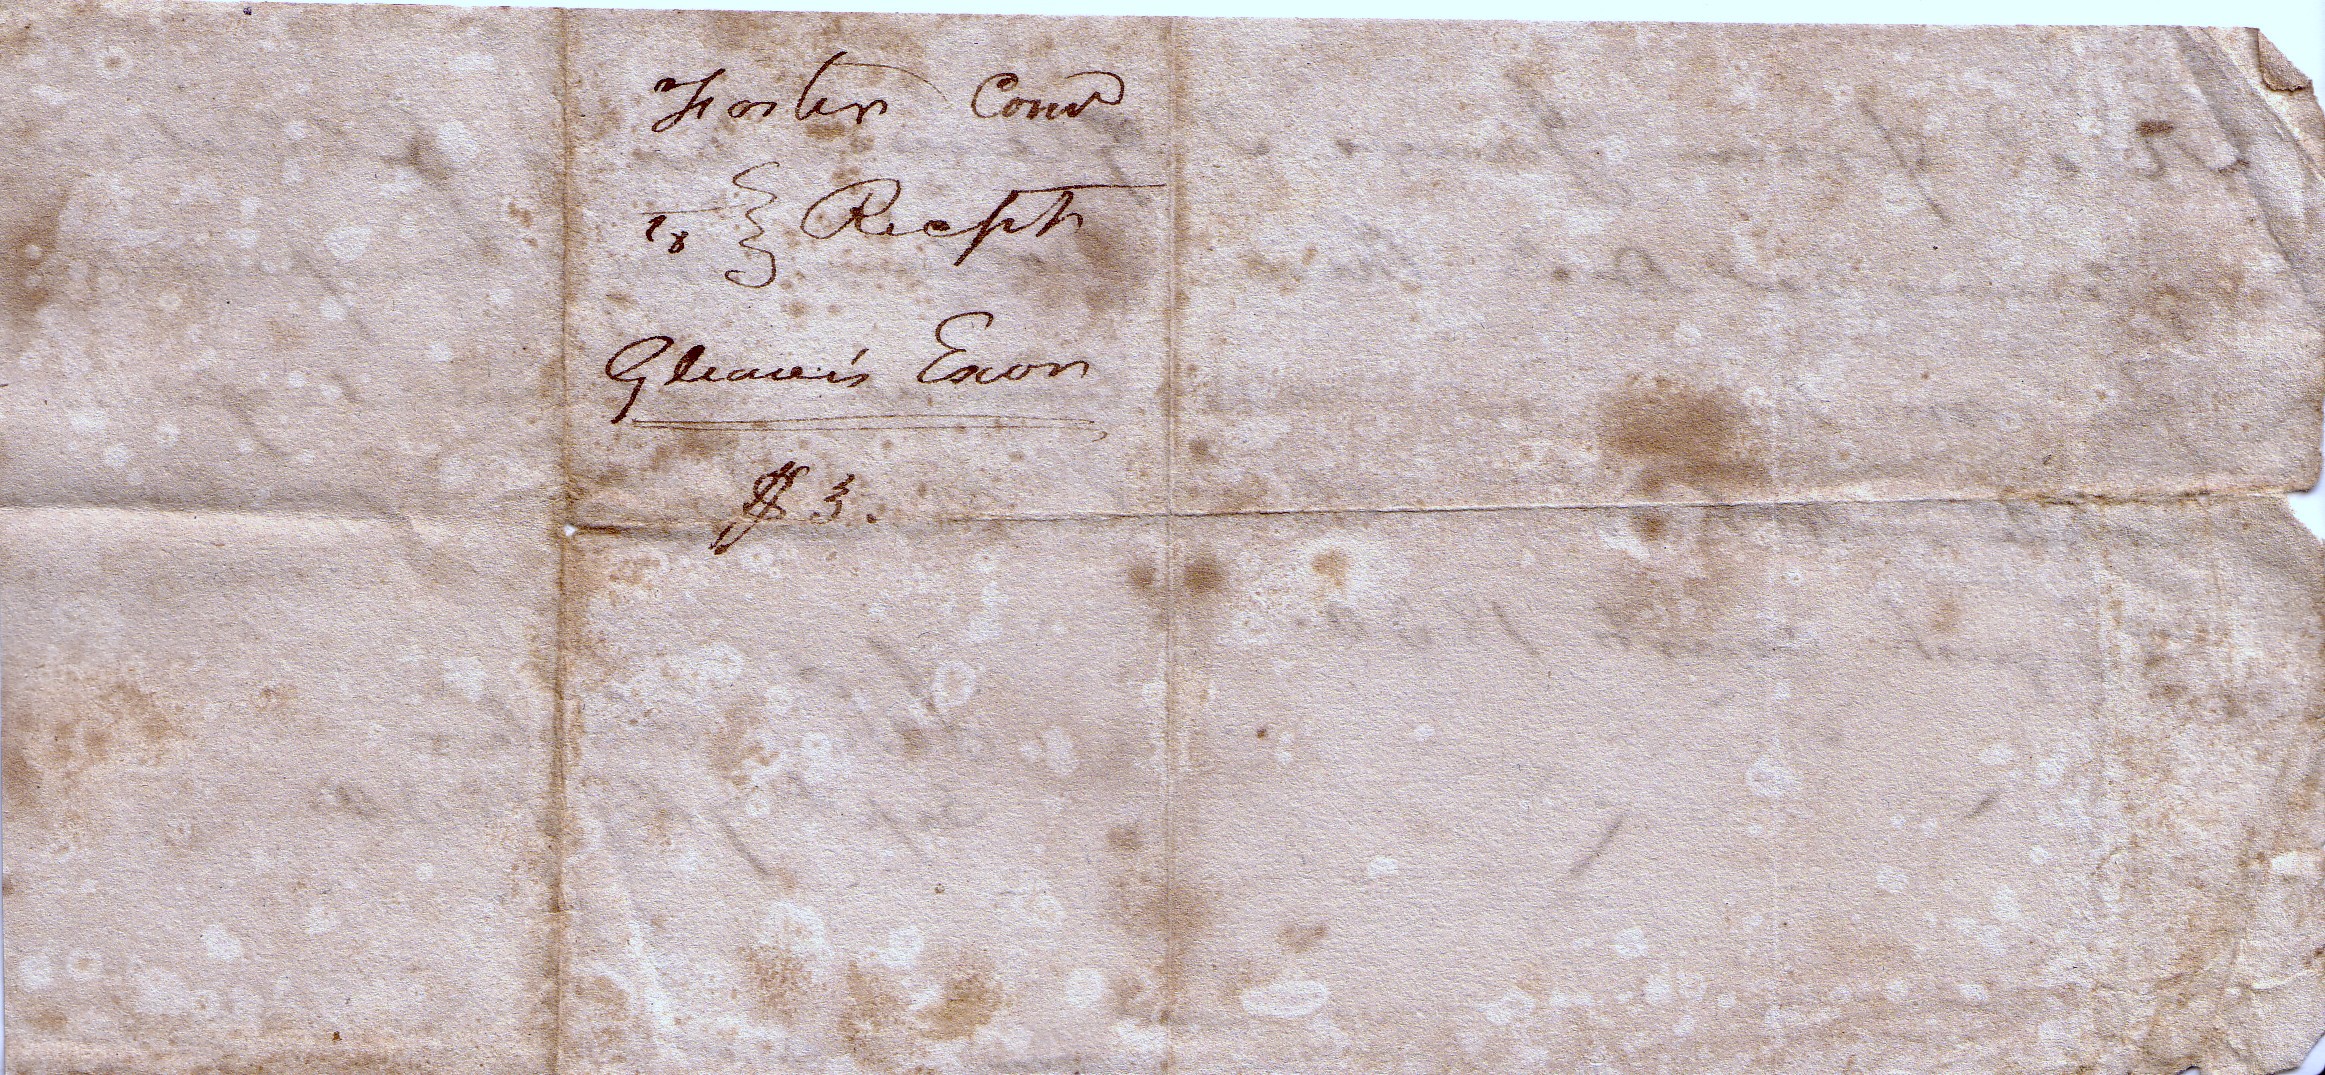 Foster Comr
To } Recpt
Gleave's Exor
$3.